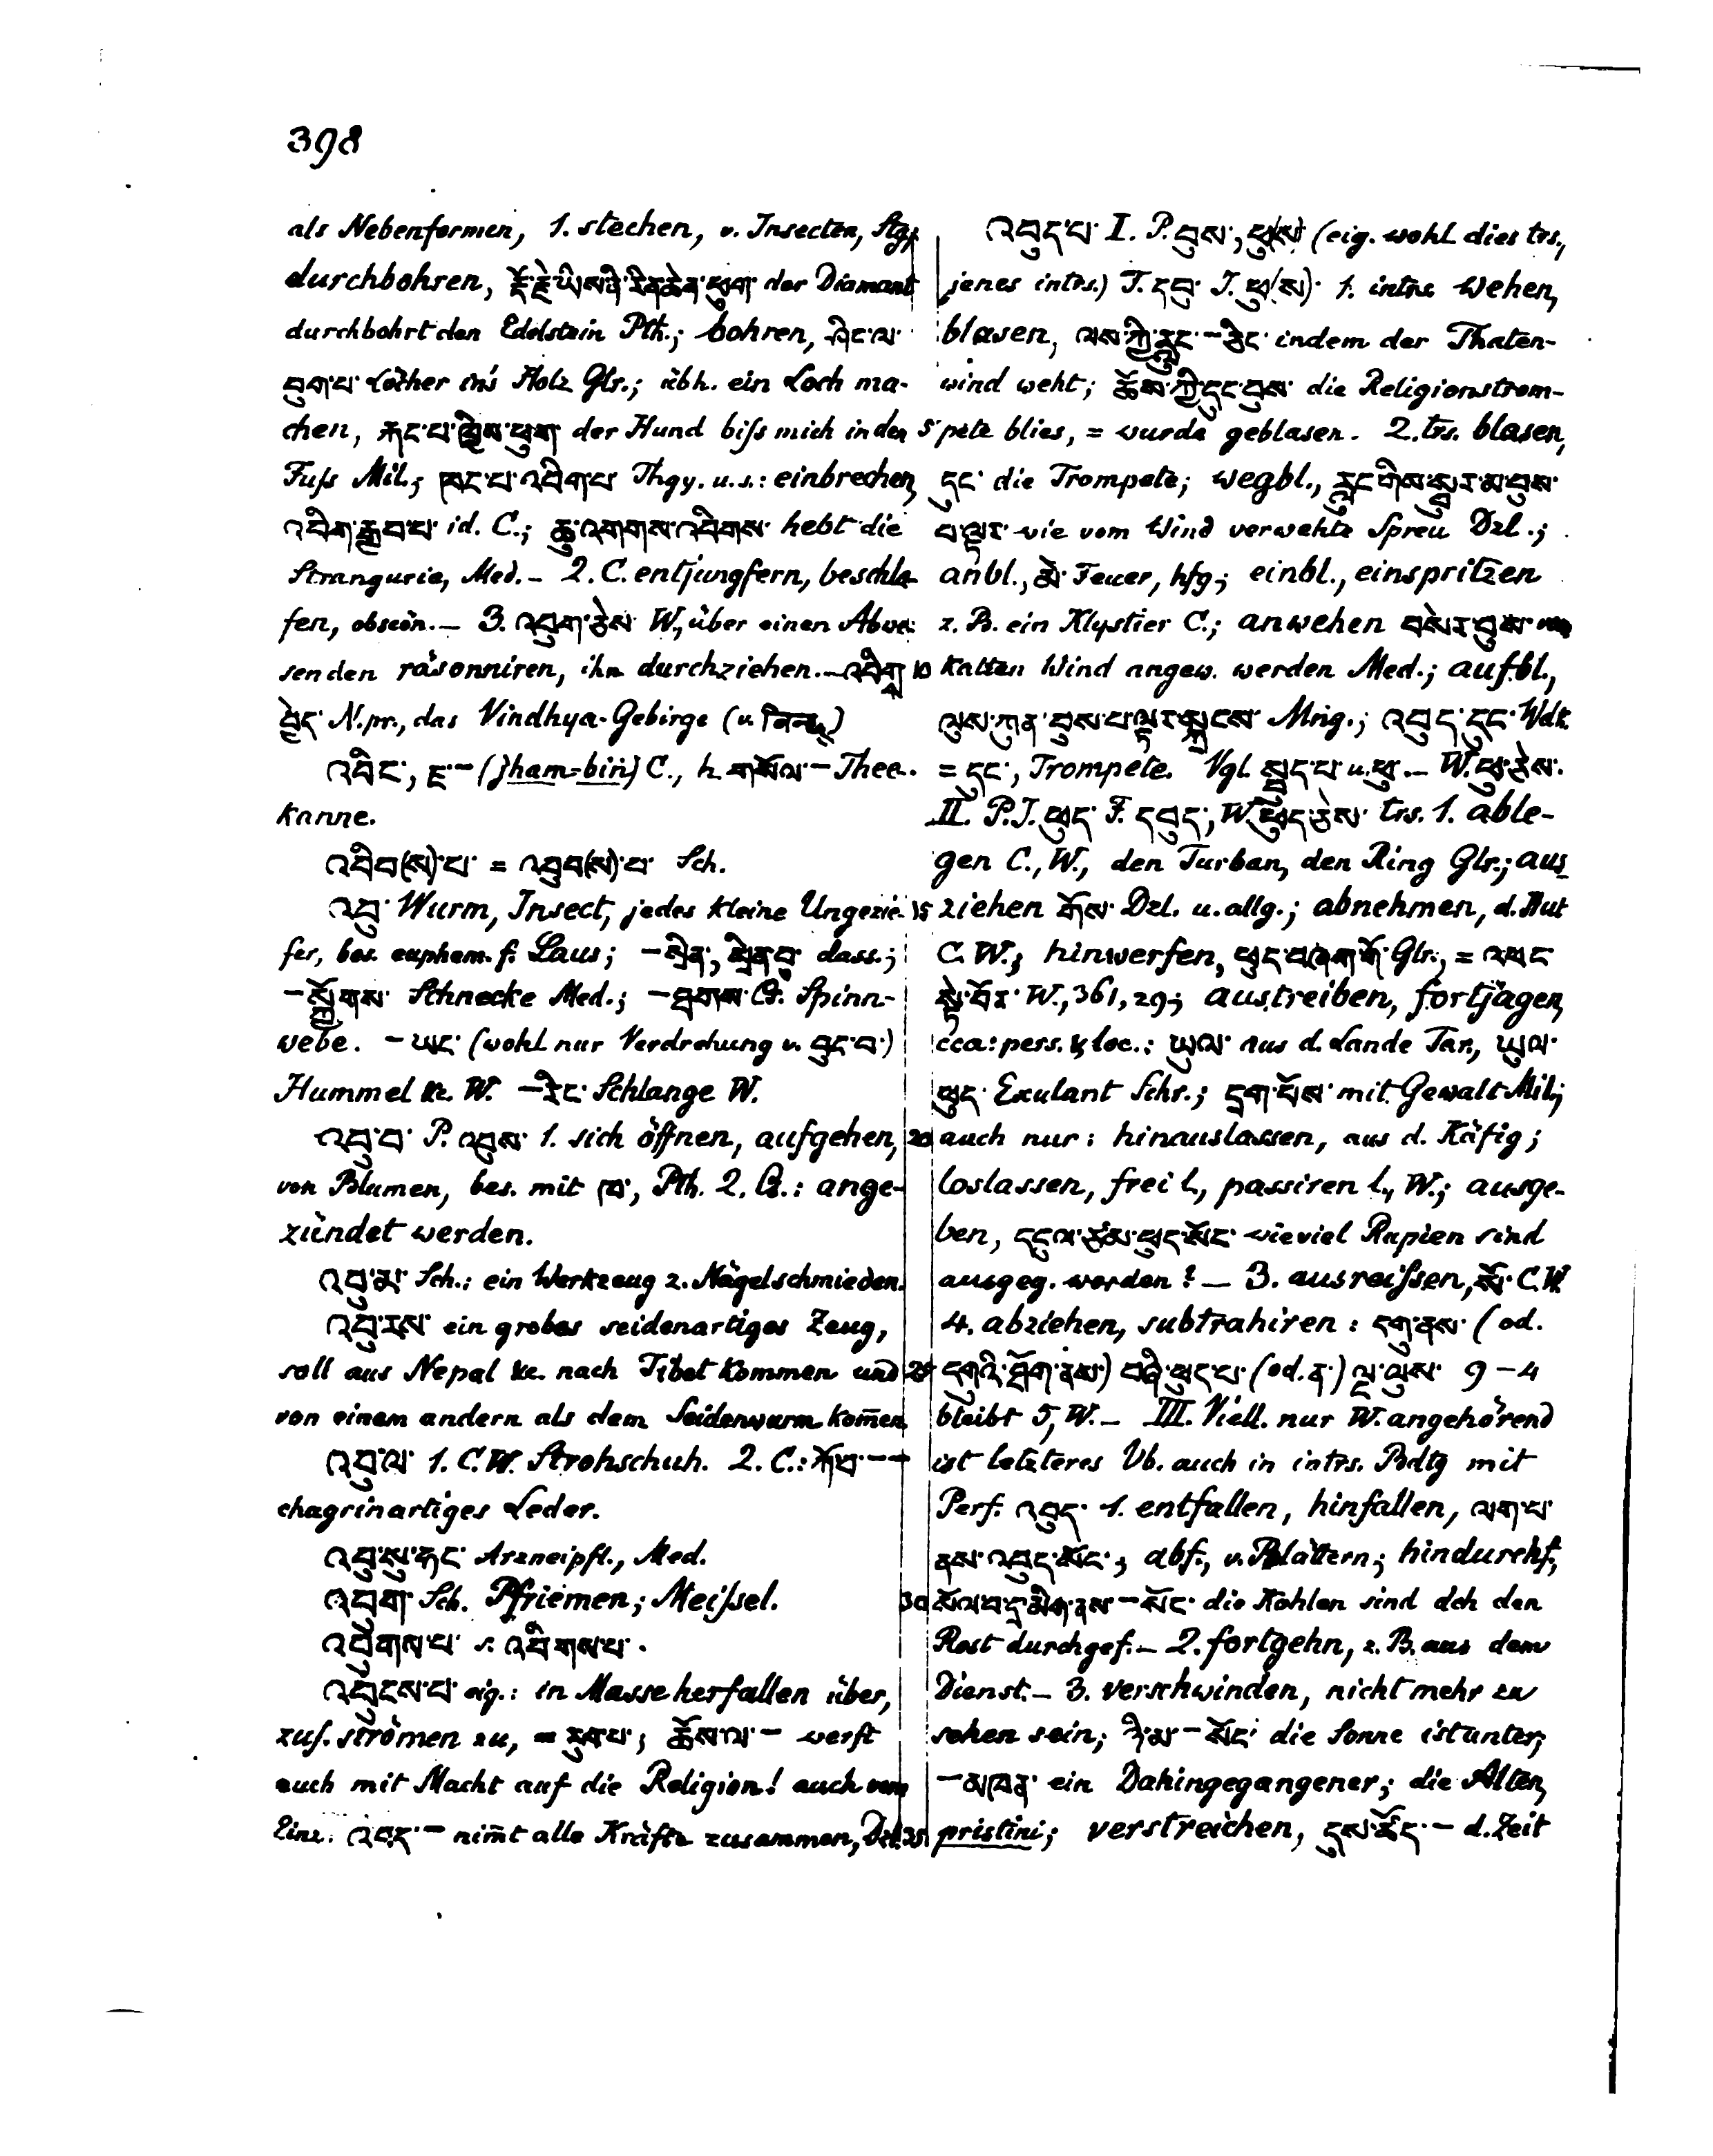 398
als Nebenformen, 1. stechen, v. Insecten, Stg;
durchbohren, རྡོ་རྗེ་ཡིས་ནི་རིན་ཆེན་ཕུག་ der Diamant
durchbohrt den Edelstein Pth.; bohren, ཤིང་ལ་
བུག་པ་ Löcher in's Holz Glr.; übh. ein Loch ma-
chen, རྐང་པ་ཁྱིས་ཕུག der Hund biſs mich in den
Fuſs Mil.; ཁང་པ་འབིག་པ Thgy. u.s.: einbrechen,
འབིག་རྒྱབ་པ་ id. C.; ཆུ་འགགས་འབིགས་ hebt die
Strangurie, Med. – 2. C. entjungfern, beschla-
fen, obscön. – 3. འབུག་ཅེས་ W., über einen Abwe-
senden räsonniren, ihn durchziehen. –འབིག
བྱེད་ N.pr., das Vindhya-Gebirge (v.
འབིང་, ཇ་– (jham-biṅ) C., h. གསོལ་– Thee-
kanne.
འབིབ(ས)་པ་ = འབུབ(ས)་པ་ Sch.
འབུ་ Wurm, Insect, jedes kleine Ungezie-
fer, bes. euphem. f. Laus; –སྲིན་, སྲིན་བུ་ dass.;
–སྐྱོགས་ Schnecke Med.; –ཐགས་ Cs. Spinn-
webe. –ཡང་ (wohl nur Verdrehung v. བུང་བ་)
Hummel &c. W. –རིང་ Schlange W.
འབུ་བ་ P. འབུས་ 1. sich öffnen, aufgehen,
von Blumen, bes. mit ཁ་, Pth. 2. Cs.: ange-
zündet werden.
Sch.: ein Werkzeug z. Nägelschmieden.
འབུ་རས་ ein grobes seidenartiges Zeug,
soll aus Nepal &c. nach Tibet kommen und
von einem andern als dem Seidenwurm kom̄en
འབུ་ལ་ 1. C.W. Strohschuh. 2. C.: ཀོབ་––
chagrinartiges Leder.
འབུ་སུ་ཧང་ Arzneipfl., Med.
འབུག་ Sch. Pfriemen; Meiſsel.
འབུགས་པ་ s. འབིགས་པ་.
འབུངས་པ་ eig.: in Masse herfallen über,
zuſ. strömen zu, = ; ཆོས་ལ་– werft
euch mit Macht auf die Religion! auch vom
Einz. – nim̄t alle Kräfte zusammen, Dzl.
འབུད་པ་ I. P. བུས་, ཕུ(ས) (eig. wohl dies trs.,
jenes intrs.) F. དབུ་ I. ཕུ(ས)་ 1. intrs. wehen,
blasen, ལས་ཀྱི་རླུང་–ཅིང་ indem der Thaten-
wind weht; ཆོས་ཀྱི་དུང་བུས་ die Religionstrom-
5 pete blies, = wurde geblasen. 2. trs. blasen,
དུང་ die Trompete; wegbl., རླུང་གིས་སྦུར་མ་བུས་
པ་ལྟར་ wie vom Wind verwehte Spreu Dzl.;
anbl., མེ་ Feuer, hfg; einbl., einspritzen
z.B. ein Klystier C.; anwehen བསེར་བུས་ vom
10 kalten Wind angew. werden Med.; aufbl.,
ལུས་ཀུན་བུས་པ་ལྟར་སྐྲངས་ Mng.; འབུད་དུང་ Wdk.
= དུང་, Trompete. Vgl. སྦུད་པ་ u. ཕུ་. – W. ཕུ་ཅེས་.
II. P. I. ཕུད་ F. དབུད་, W. ཕུད་ཅེས་ trs. 1. able-
gen C., W., den Turban, den Ring Glr.; aus-
15 ziehen གོས་ Dzl. u. allg.; abnehmen, d. Hut
C. W.; hinwerfen, ཕུད་བཞག་གོ་ Glr., = འཕང་
སྟེ་བོར་ W., 361, 29; austreiben, fortjagen,
cca: pers. & loc.: ཡུལ་ aus d. Lande Tar., ཡུལ་
ཕུད་ Exulant Schr.; དྲག་པོས་ mit Gewalt Mil.;
20 auch nur: hinauslassen, aus d. Käfig;
loslassen, frei l., passiren l., W.; ausge-
ben, དངུལ་ཙམ་ཕུད་སོང་ wieviel Rupien sind
ausgeg. worden? – 3. ausreiſsen, སོ་ C.W.
4. abziehen, subtrahiren: དགུ་ནས་ (od.
25 དགུའི་ཐོག་ནས་) བཞི་ཕུད་པ་ (od. ན་) ལྔ་ལུས་ 9–4
bleibt 5, W. – III. Viell. nur W. angehörend
ist letzteres Vb. auch in intrs. Bdtg mit
Perf. འབུད་ 1. entfallen, hinfallen, ལག་པ་
ནས་འབུད་སོང་; abf., v. Blättern; hindurchf.,
30 སོལ་བ་དྲ་མིག་ནས་–སོང་ die Kohlen sind dch den
Rost durchgef. – 2. fortgehn, z.B. aus dem
Dienst. – 3. verschwinden, nicht mehr zu
sehen sein; ཉི་མ་–སོང་ die Sonne ist unter;
–མཁན་ ein Dahingegangener; die Alten,
35 pristini; verstreichen, དུས་ཚོད་– d. Zeit